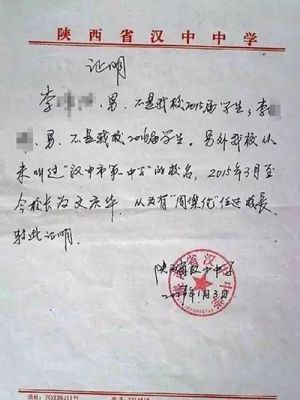 陕西省汉中中学
证明
李 ,男、不是我校2015届学生;李
,男、不是我校2016届学生。另外我校从
未叫过“汉中市第一中学”的校名,2015年3月至
今校长为文宏华,从未有“周伟化”任过校长。
特此证明。
陕西省汉中中学
年1月3日
地址:兴汉路211号